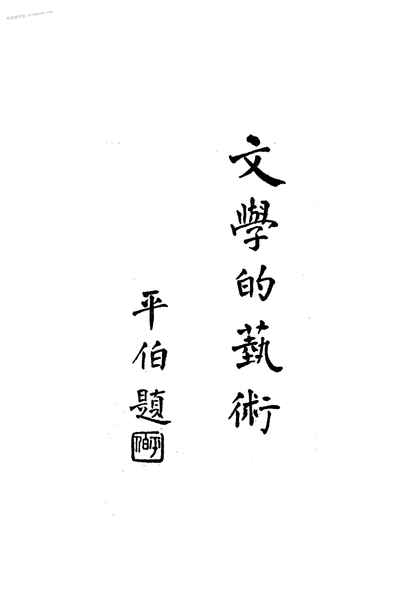 文學的藝術
平伯題